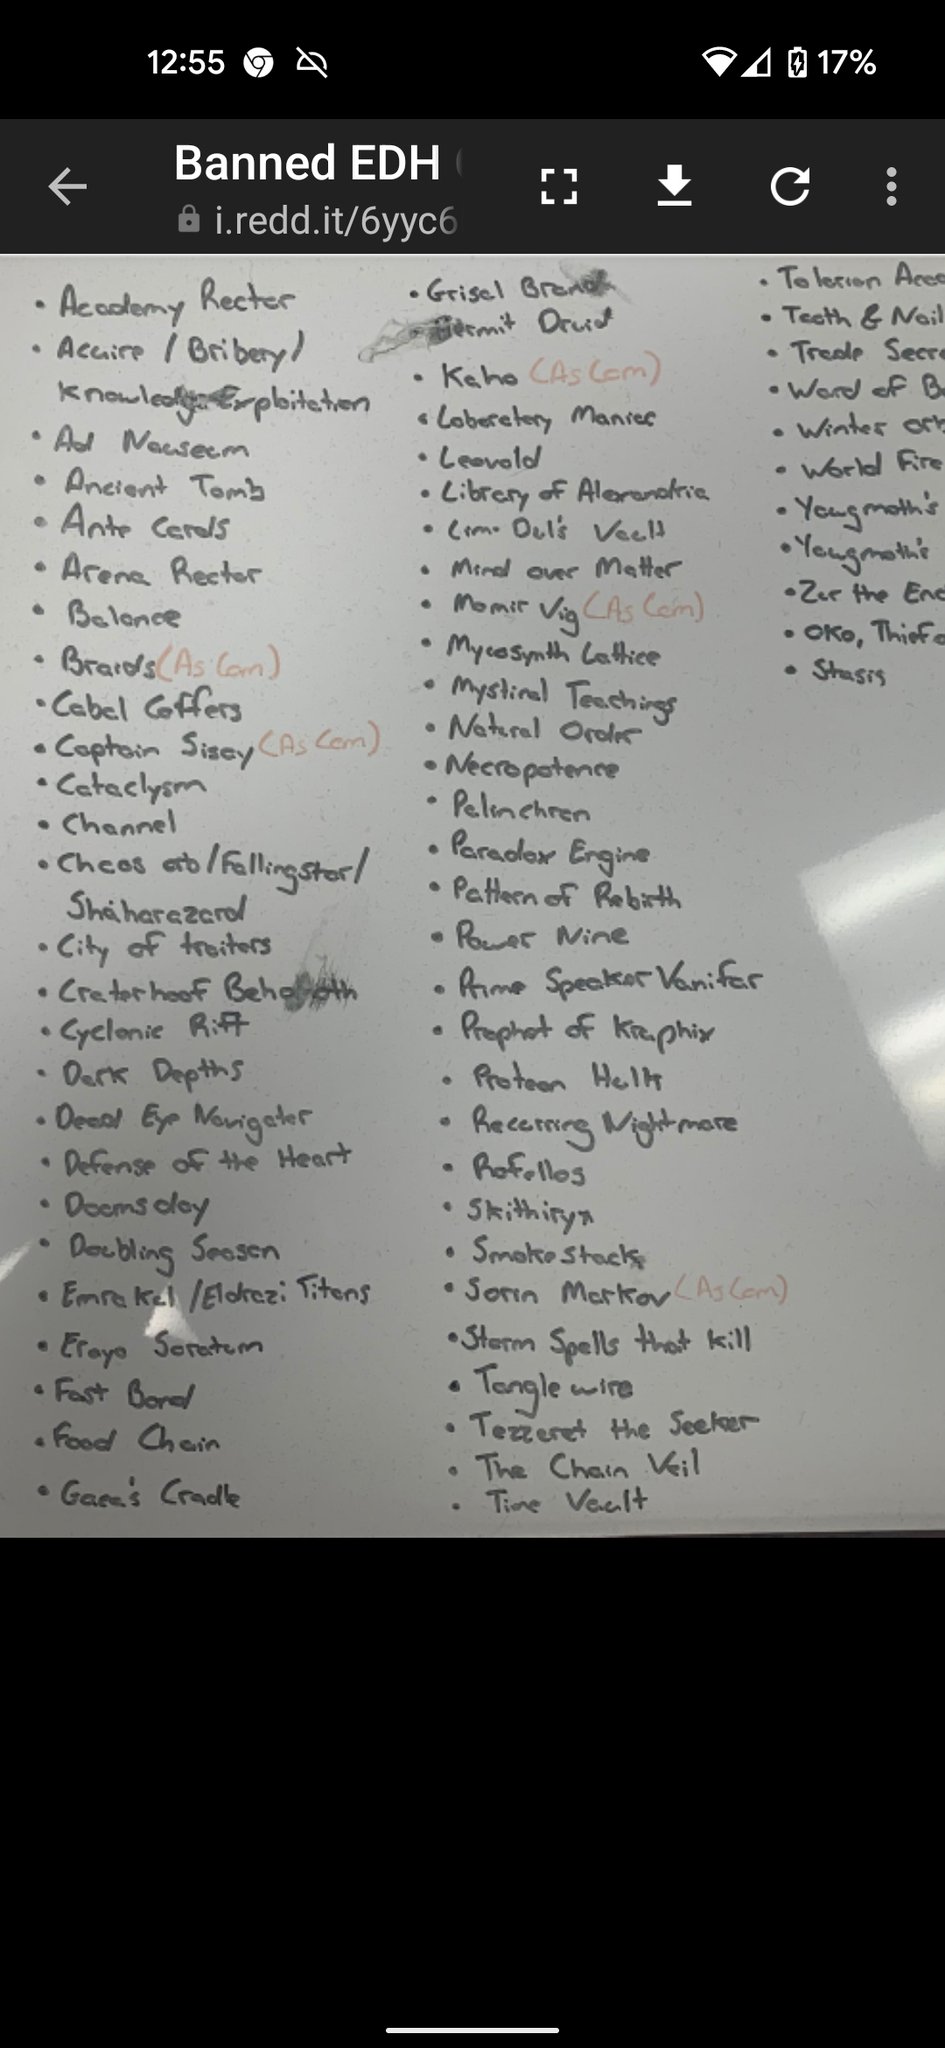 12:55
17%
Banned EDH
i.redd.it/6yyc6
• Academy Rector
• Acquire / Bribery /
Knowledge Exploitation
• Ad Nauseam
• Ancient Tomb
• Ante Cards
• Arena Rector
• Balance
• Braids (As Com)
• Cabal Coffers
• Captain Sisay (As Com)
• Cataclysm
• Channel
• Chaos orb/Fallingstar/
Shaharazard
• City of traitors
• Craterhoof Behemoth
• Cyclonic Rift
• Dark Depths
• Dead Eye Navigator
• Defense of the Heart
• Doomsday
• Doubling Season
• Emrakul /Eldrazi Titans
• Erayo Soratum
• Fast Bond
• Food Chain
• Gaea's Cradle
• Grisel Brand
Hermit Druid
• Kaho (As Com)
• Laboratory Maniac
• Leovold
• Library of Alexandria
• Lim-Dul's Vault
• Mind over Matter
• Momir Vig (As Com)
• Mycosynth Lattice
• Mystical Teachings
• Natural Order
• Necropotence
• Palinchron
• Paradox Engine
• Pattern of Rebirth
• Power Nine
• Prime Speaker Vanifar
• Prophet of Kruphix
• Protean Hulk
• Recurring Nightmare
• Rofellos
• Skithiryx
• Smokestack
• Sorin Markov (As Com)
• Storm Spells that kill
• Tangle wire
• Tezzeret the Seeker
• The Chain Veil
• Time Vault
• Tolarian Aca
• Tooth & Nail
• Trade Secre
• Word of B
• Winter orb
• World Fire
• Yawgmoth's
• Yawgmoth's
• Zur the Enc
• OKO, Thief o
• Stasis